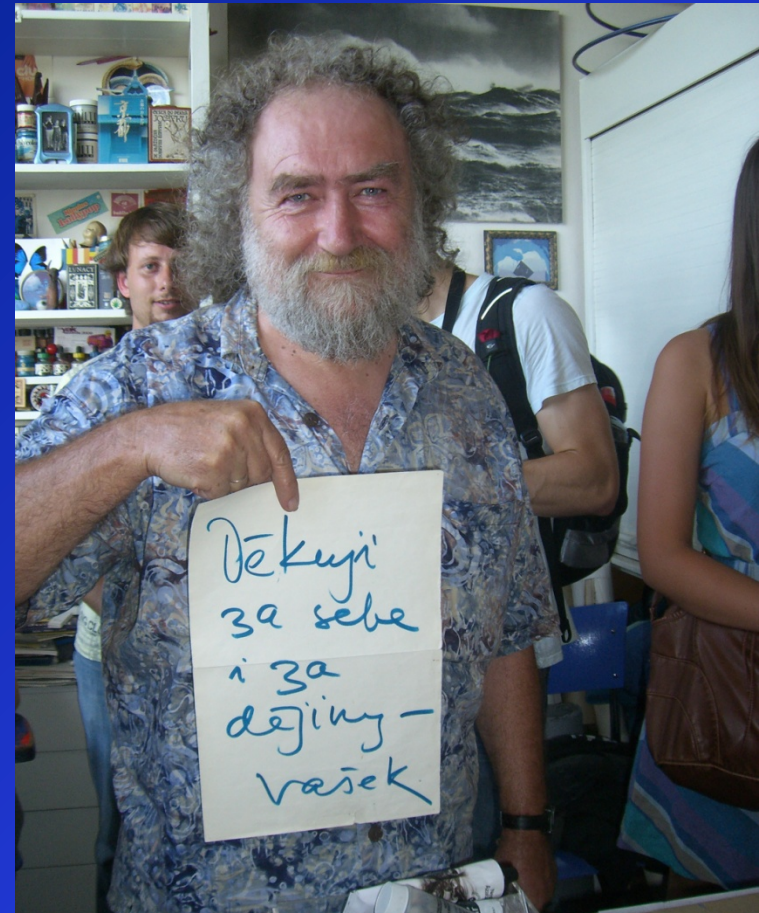 Děkuji
za sebe
i za
dějiny –
vašek